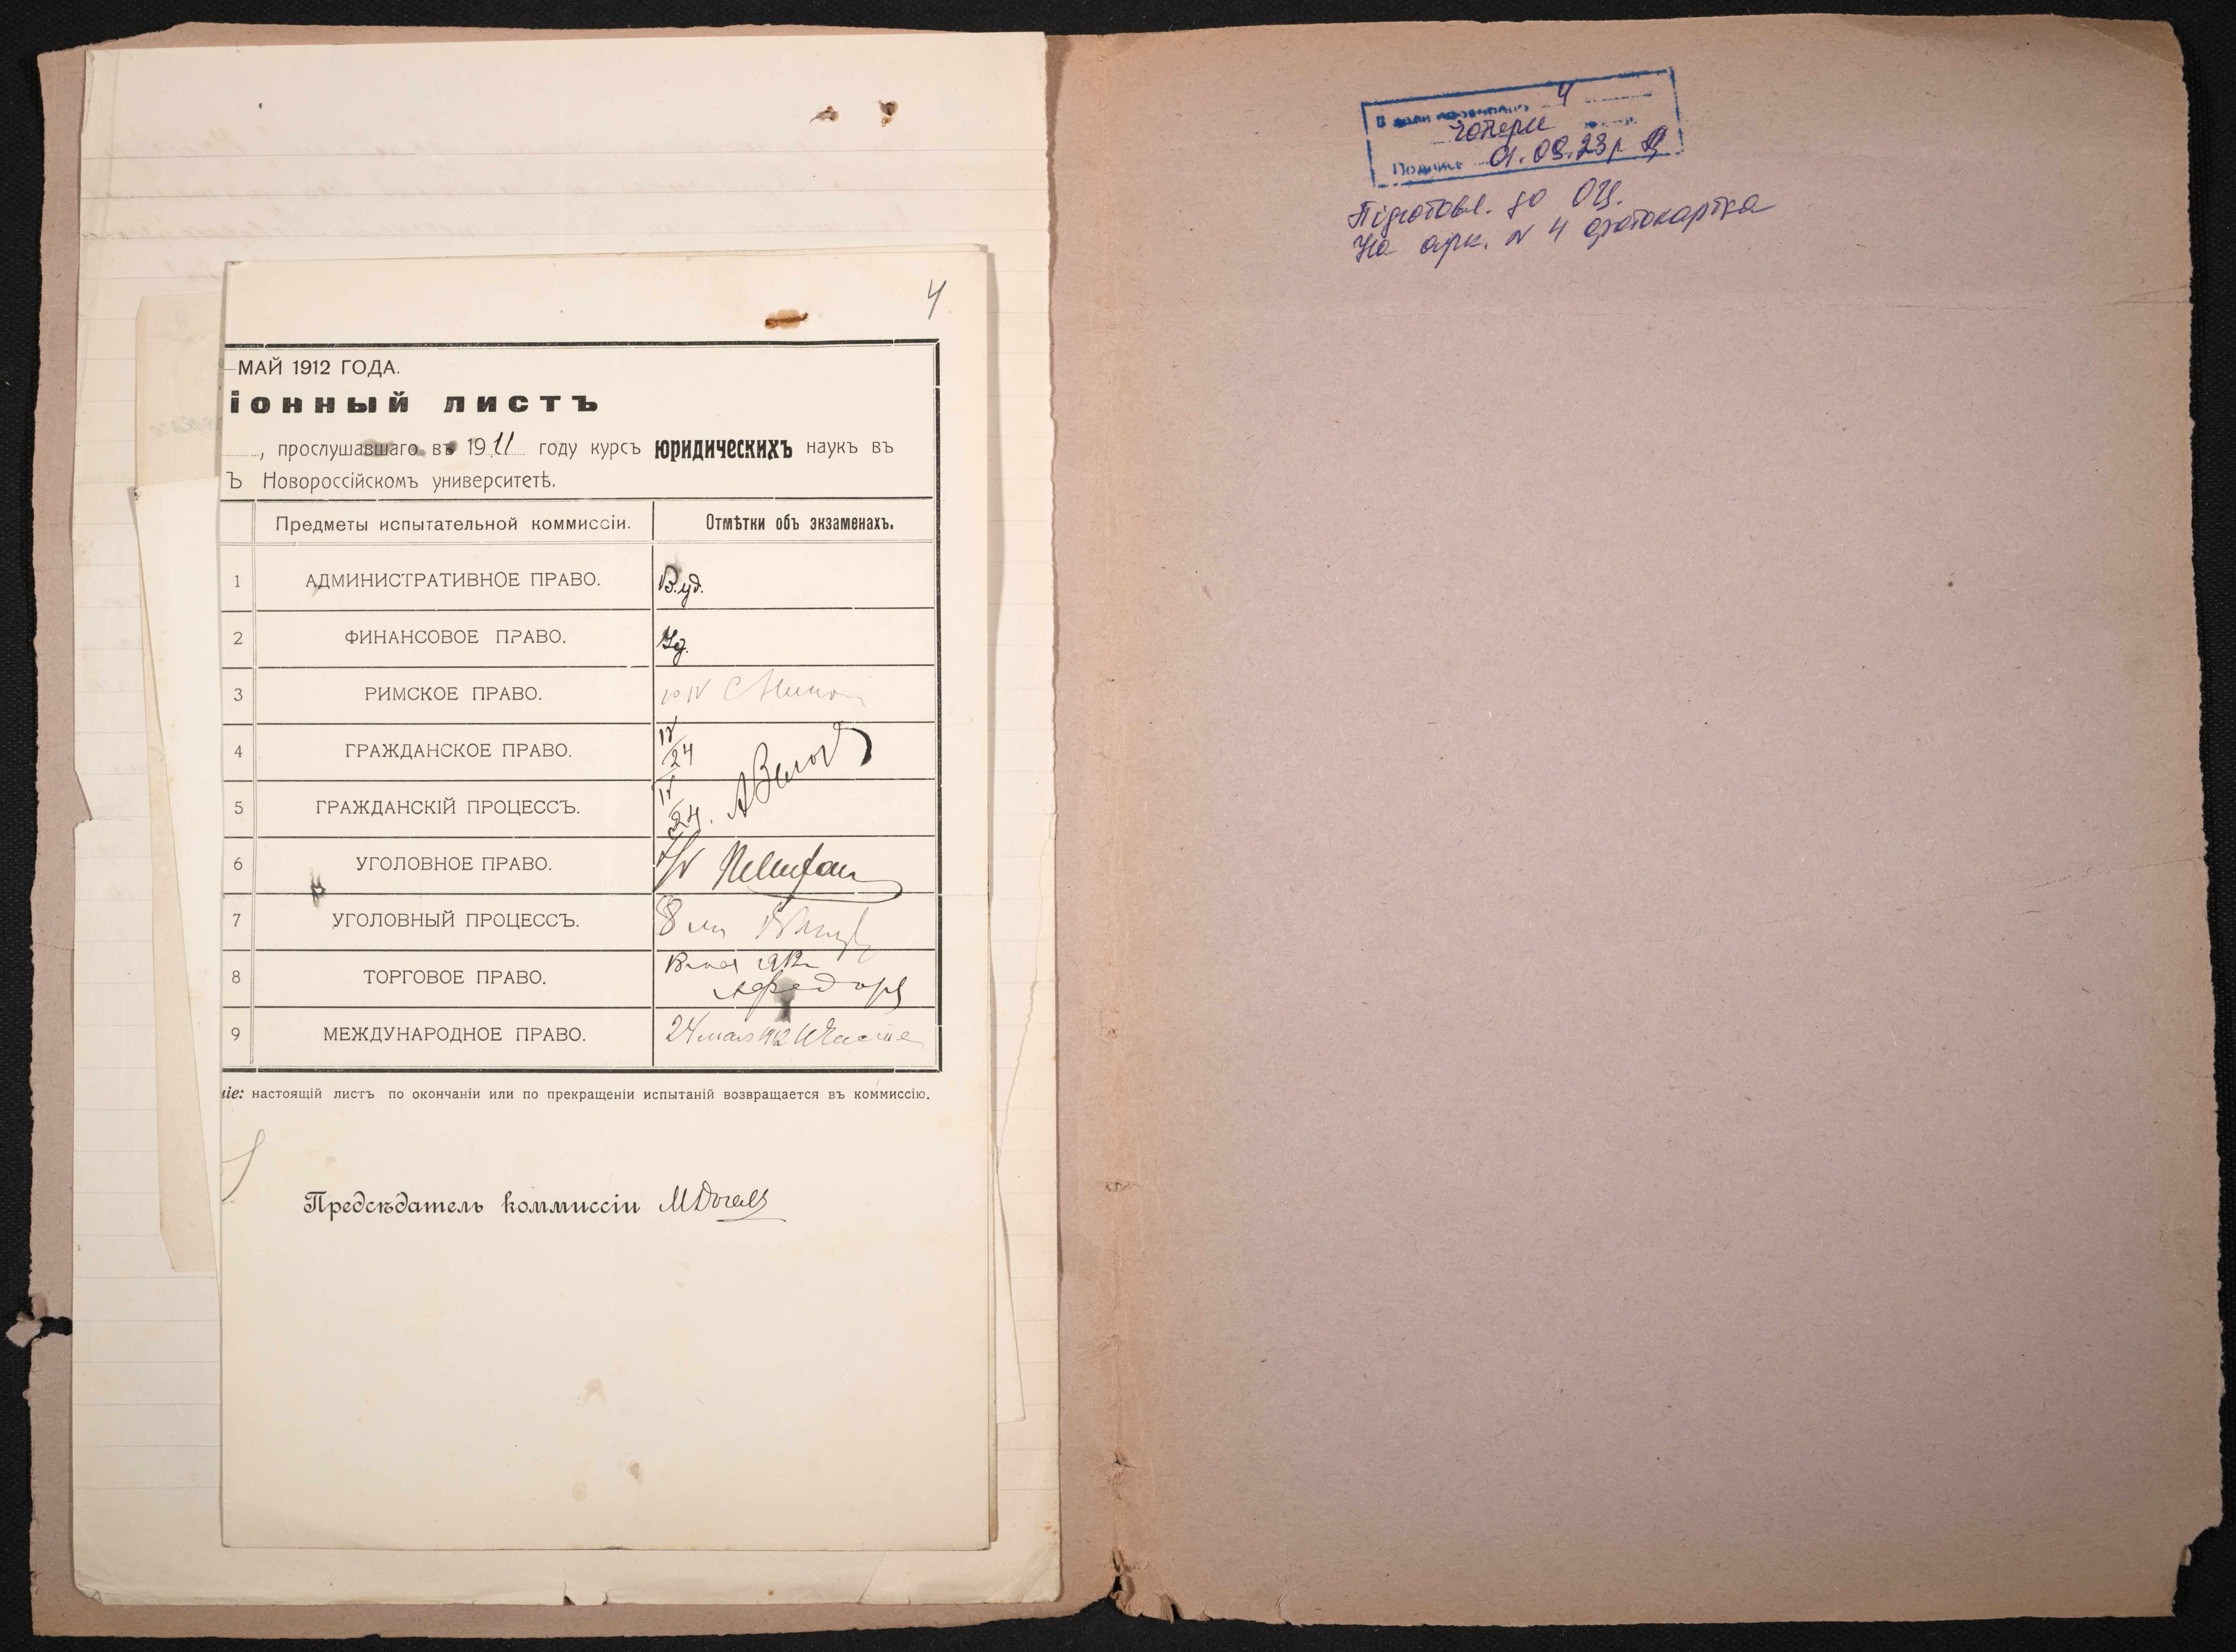 4
—МАЙ 1912 ГОДА.
іонный листъ
, прослушавшаго въ 1911 году курсъ юридическихъ наукъ въ
Ъ Новороссійскомъ университетѣ.
Предметы испытательной коммиссіи. Отмѣтки объ экзаменахъ.
1 АДМИНИСТРАТИВНОЕ ПРАВО. В.уд.
2 ФИНАНСОВОЕ ПРАВО. Уд.
3 РИМСКОЕ ПРАВО. 10 IV
4 ГРАЖДАНСКОЕ ПРАВО. IV/24
5 ГРАЖДАНСКІЙ ПРОЦЕССЪ. IV/24.
6 УГОЛОВНОЕ ПРАВО.
7 УГОЛОВНЫЙ ПРОЦЕССЪ. 8
8 ТОРГОВОЕ ПРАВО.
9 МЕЖДУНАРОДНОЕ ПРАВО. 24 мая 1912
ніе: настоящій листъ по окончаніи или по прекращеніи испытаній возвращается въ коммиссію.
Предсѣдатель коммиссіи
В 4
чотири
Подпись 01.09.23р
Підготовл. до ОЦ.
На арк. № 4 фотокартка